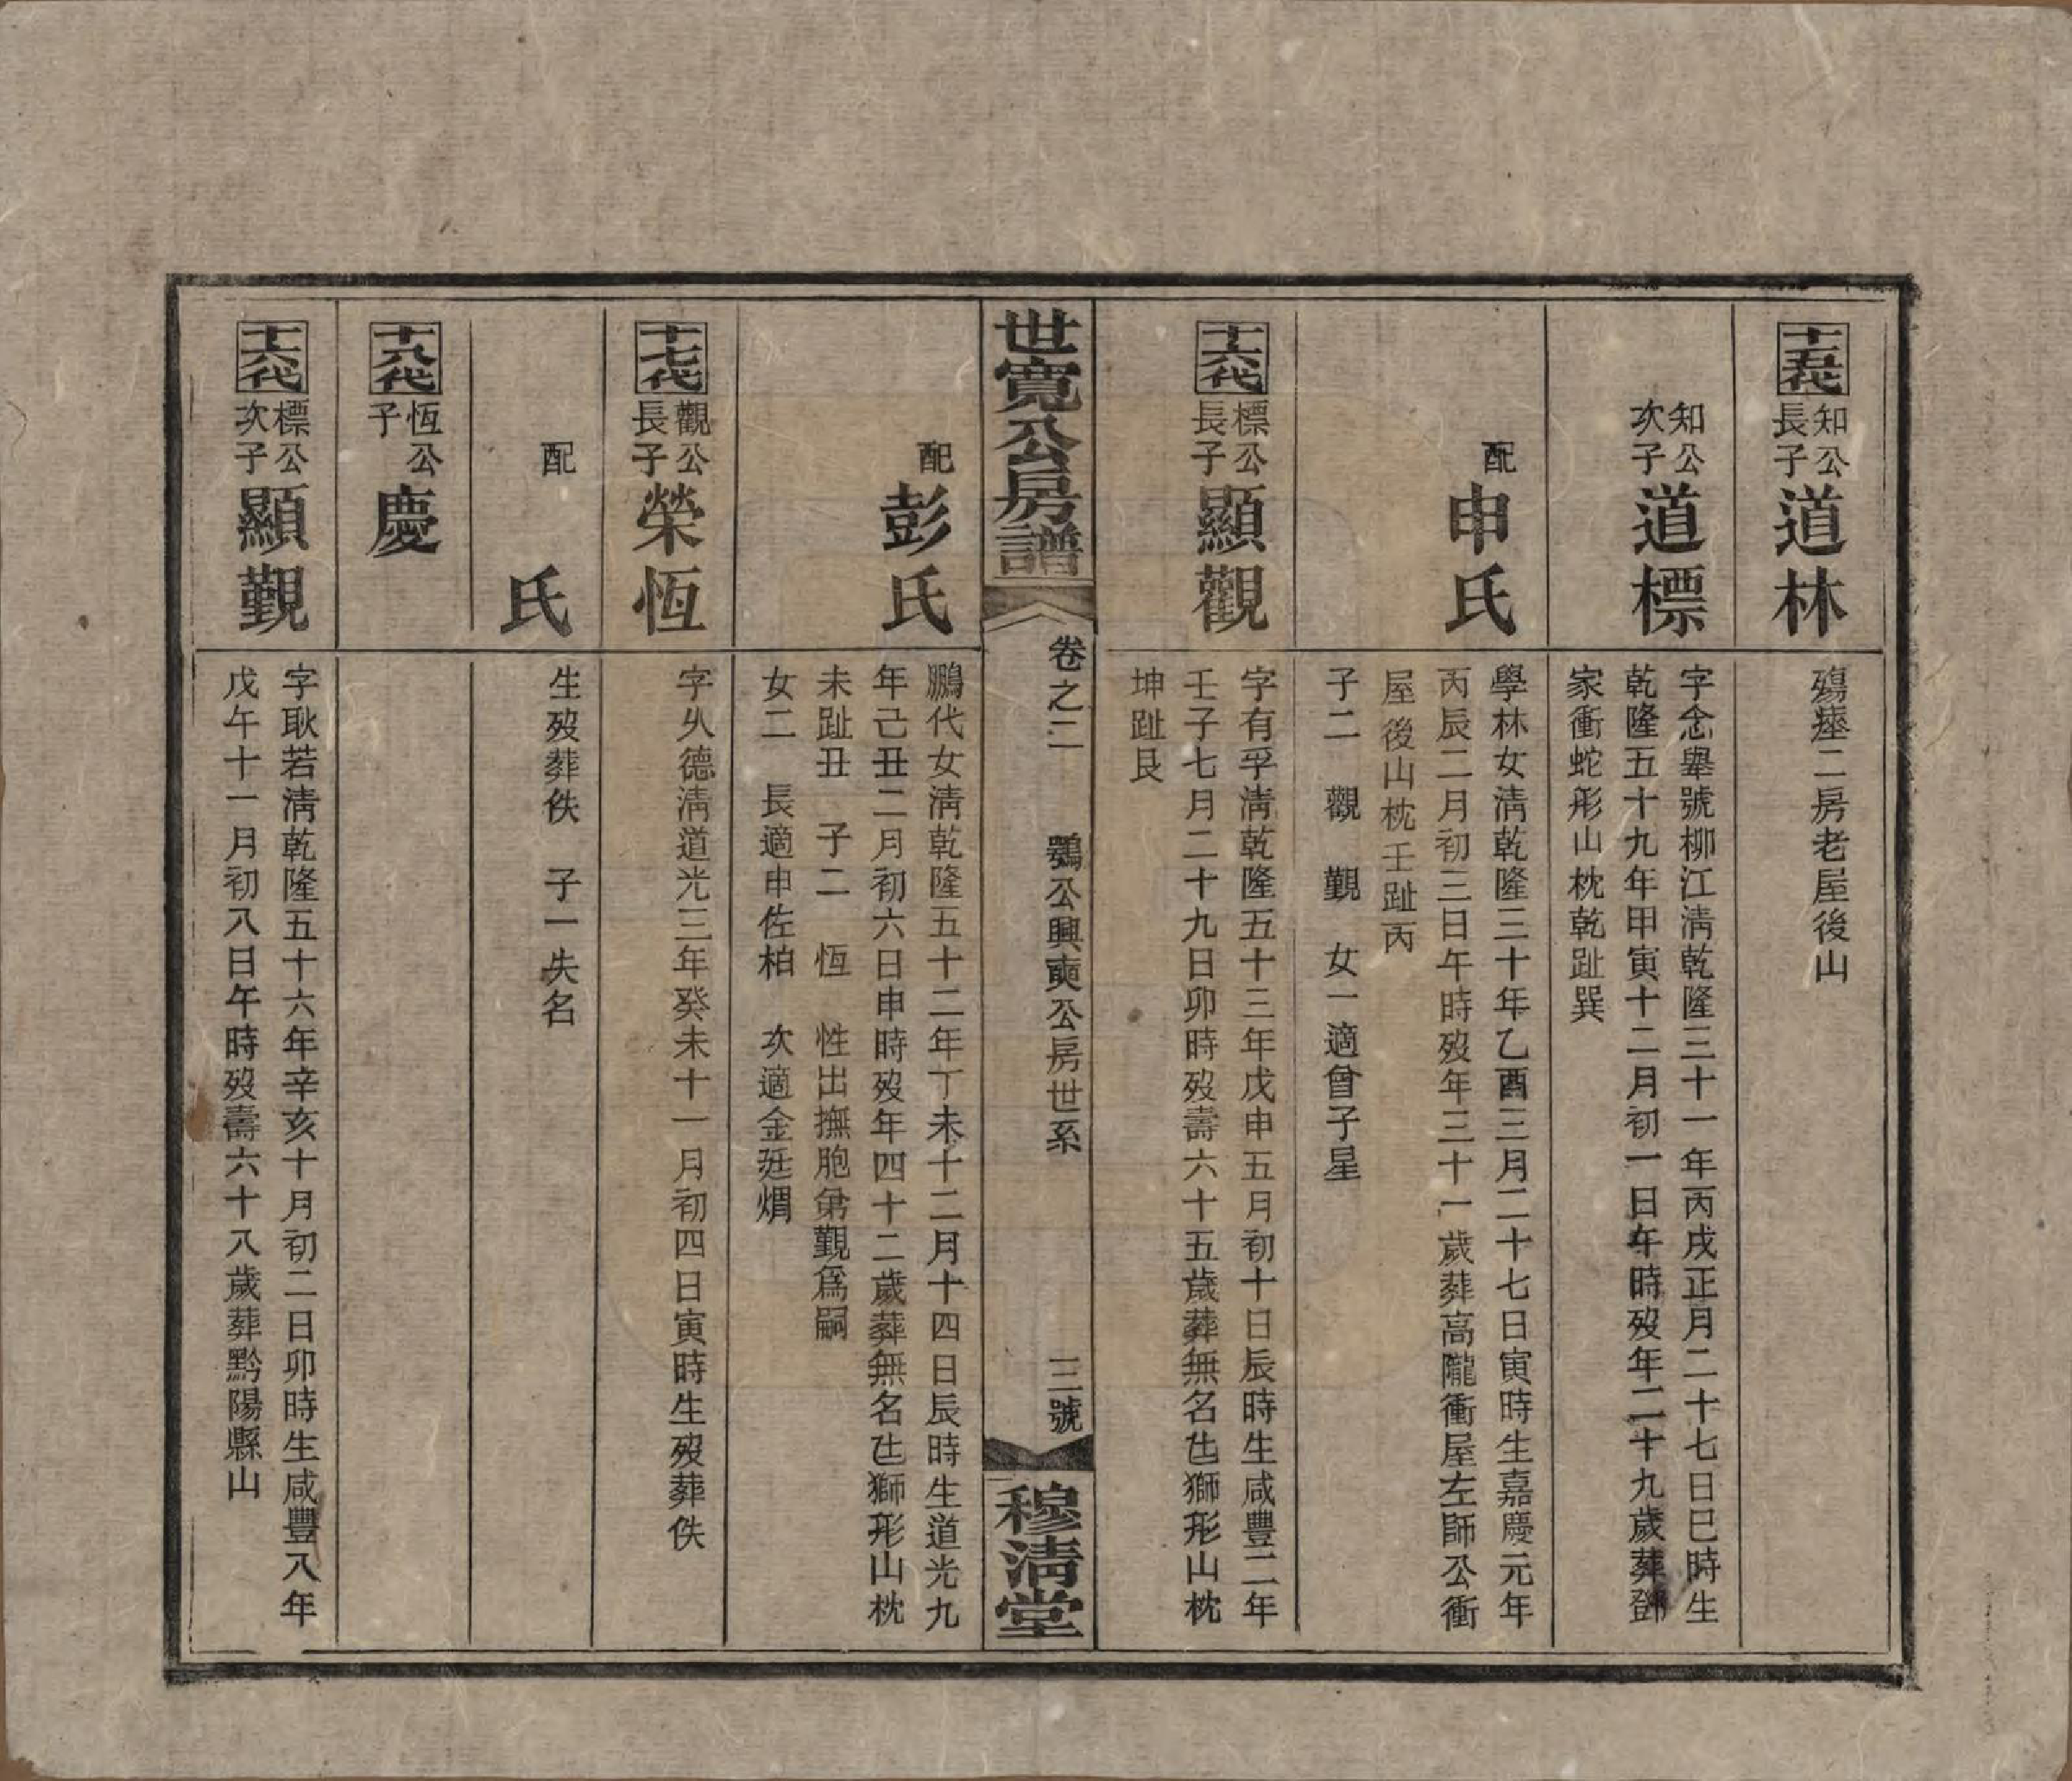 十五代
知公
長子
道林
殤瘞二房老屋後山
知公
次子
道標
字念舉號柳江淸乾隆三十一年丙戌正月二十七日巳時生
乾隆五十九年甲寅十二月初一日午時歿年二十九歲葬鄧
家衝蛇形山枕乾趾巽
配
申氏
學林女淸乾隆三十年乙酉三月二十七日寅時生嘉慶元年
丙辰二月初三日午時歿年三十一歲葬高隴衝屋左師公衝
屋後山枕壬趾丙
子二 觀 覲 女一適曾子星
十六代
標公
長子
顯觀
字有孚淸乾隆五十三年戊申五月初十日辰時生咸豐二年
壬子七月二十九日卯時歿壽六十五歲葬無名乜獅形山枕
坤趾艮
世寬公房譜
卷之二 鸚公興奭公房世系 三號
穆淸堂
配
彭氏
鵬代女淸乾隆五十二年丁未十二月十四日辰時生道光九
年己丑二月初六日申時歿年四十二歲葬無名乜獅形山枕
未趾丑 子二 恆 性出撫胞弟覲爲嗣
女二 長適申佐柏 次適金廷燗
十七代
觀公
長子
榮恆
字乆德淸道光三年癸未十一月初四日寅時生歿葬佚
配
氏
生歿葬佚 子一失名
十八代
恆公
子
慶
十六代
標公
次子
顯覲
字耿若淸乾隆五十六年辛亥十月初二日卯時生咸豐八年
戊午十一月初八日午時歿壽六十八歲葬黔陽縣山